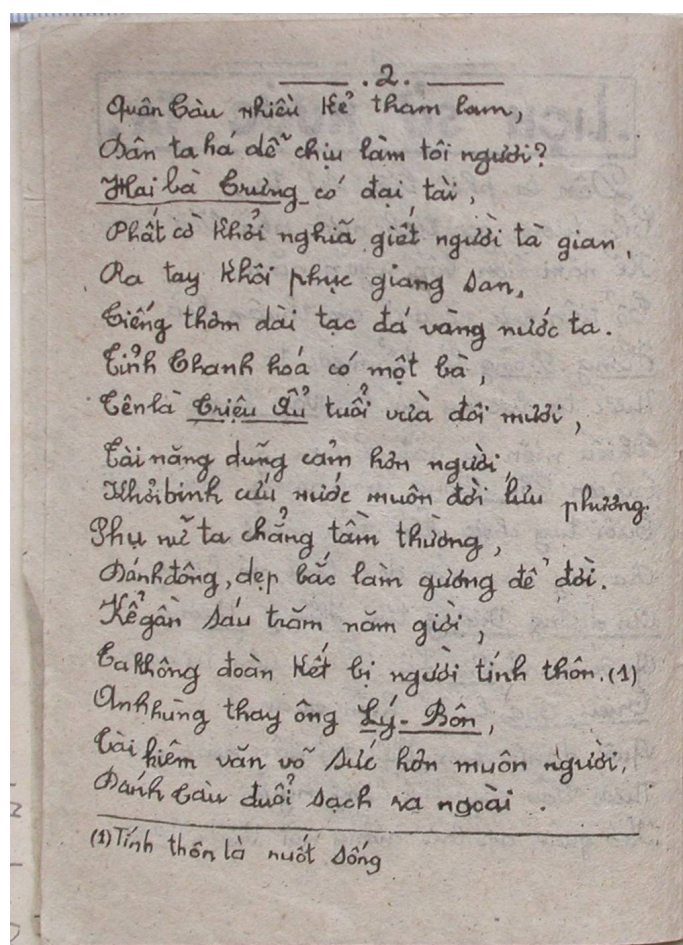 . 2 .
Quân Tàu nhiều kẻ tham lam,
Dân ta há dễ chịu làm tôi người?
Hai bà Trưng có đại tài,
Phất cờ khởi nghiã giết người tà gian,
Ra tay khôi phục giang san,
Tiếng thơm dài tạc đá vàng nước ta.
Tỉnh Thanh hoá có một bà,
Tên là Triệu Ẩu tuổi vừa đôi mươi,
Tài năng dũng cảm hơn người,
Khởi binh cứu nước muôn đời lưu phương.
Phụ nữ ta chẳng tầm thường,
Đánh đông, dẹp bắc làm gương để đời.
Kể gần sáu trăm năm giời,
Ta không đoàn kết bị người tính thôn.(1)
Anh hùng thay ông Lý-Bôn,
Tài kiêm văn võ sức hơn muôn người,
Đánh Tàu đuổi sạch ra ngoài .
(1) Tính thôn là nuốt sống